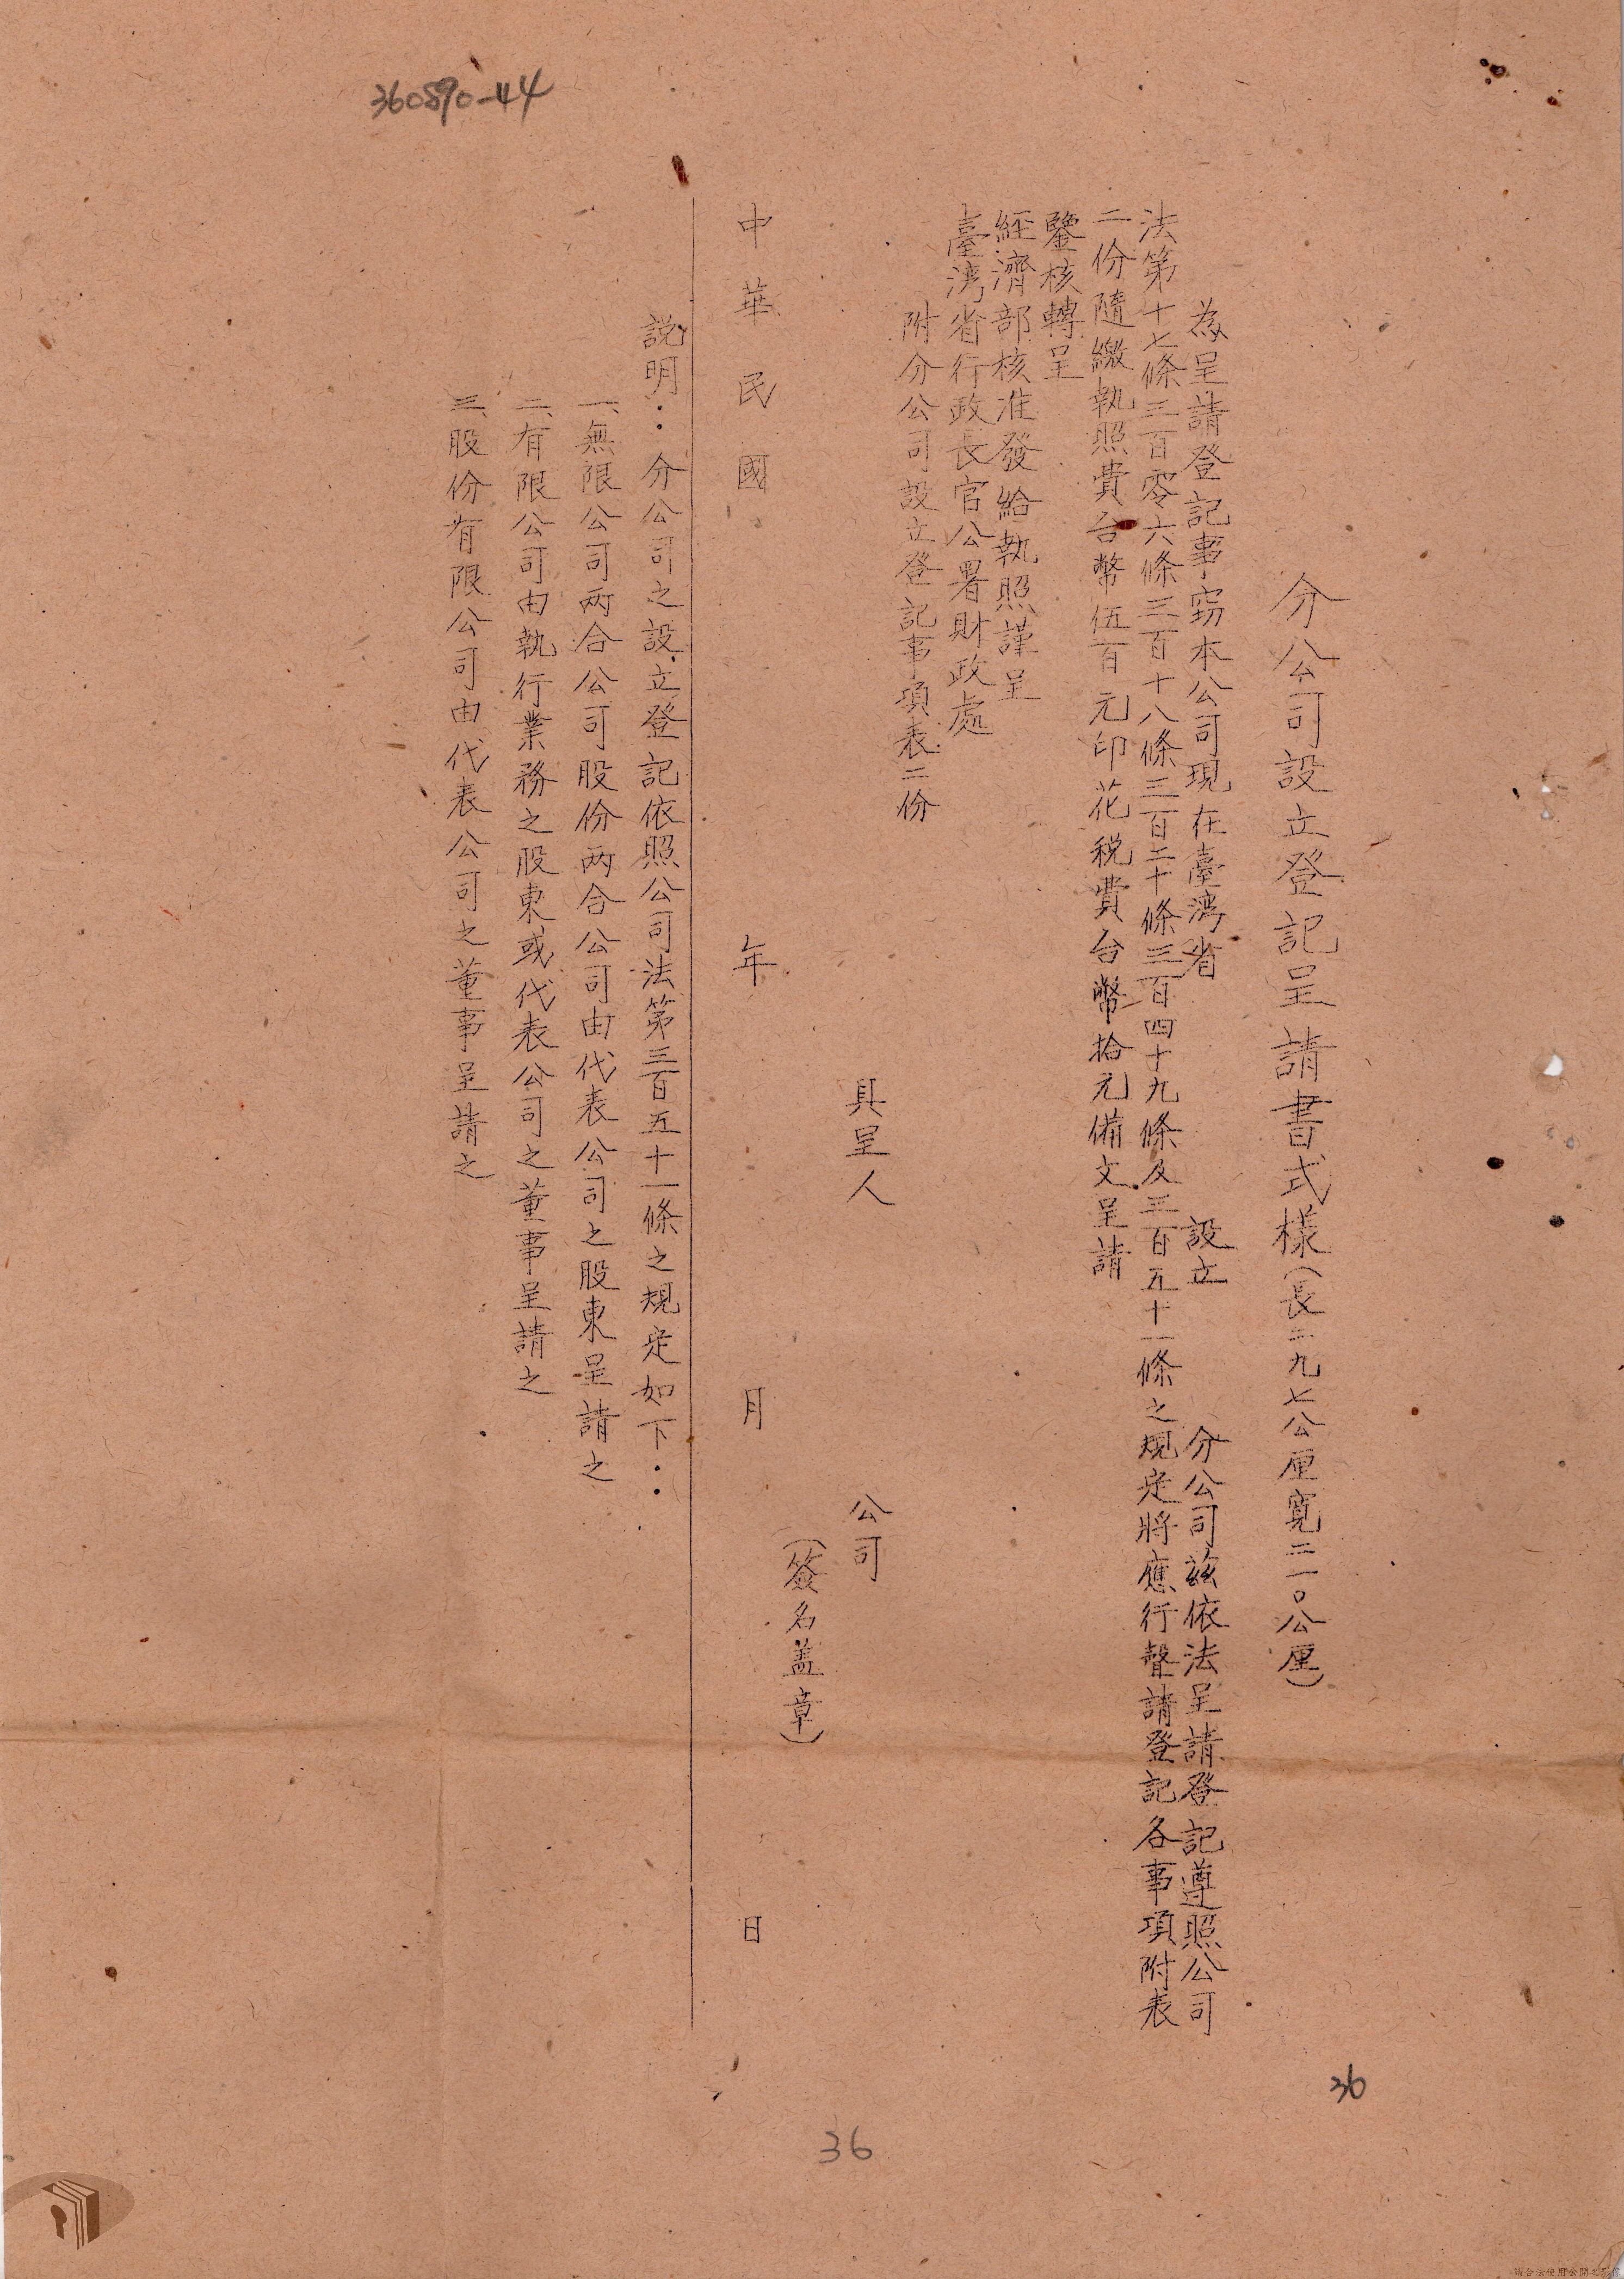 360890-44
分公司設立登記呈請書式樣（長二九七公厘寬二一〇公厘）
為呈請登記事竊本公司現在臺灣省　設立　分公司茲依法呈請登記遵照公司
法第十七條三百零六條三百十八條三百二十條三百四十九條及三百五十一條之規定將應行聲請登記各事項附表
二份隨繳執照費台幣伍百元印花稅費台幣拾元備文呈請
鑒核轉呈
經濟部核准發給執照謹呈
臺灣省行政長官公署財政處
附分公司設立登記事項表二份
具呈人　公司
（簽名盖章）
中華民國　年　月　日
說明：分公司之設立登記依照公司法第三百五十一條之規定如下：
一、無限公司兩合公司股份兩合公司由代表公司之股東呈請之
二、有限公司由執行業務之股東或代表公司之董事呈請之
三、股份有限公司由代表公司之董事呈請之
36
36